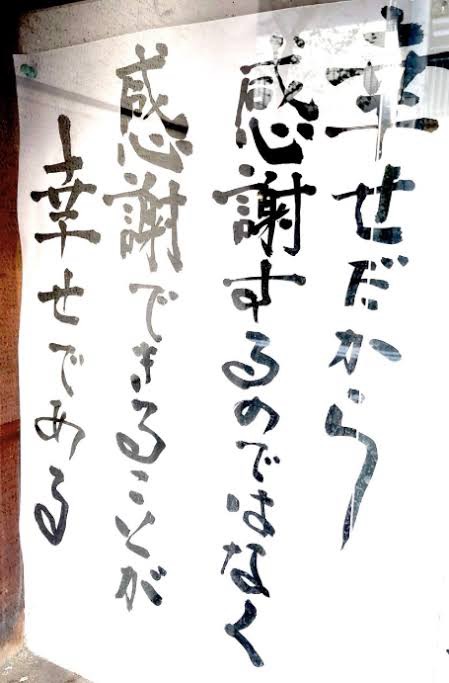 幸せだから
感謝するのではなく
感謝できることが
幸せである